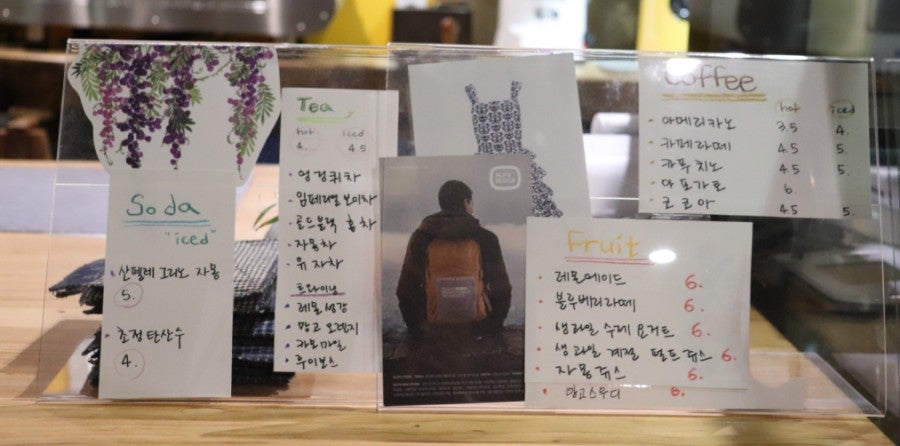 Soda
"iced"
· 산펠레그리노 자몽
5.
· 초정탄산수
4.
Tea
hot iced
4. 4.5
· 엉겅퀴차
· 임페리얼 보이차
· 골드블랙 홍차
· 자몽차
· 유자차
트와이닝
· 레몬생강
· 망고 오렌지
· 카모마일
· 루이보스
Coffee
hot iced
· 아메리카노 3.5 4.
· 카페라떼 4.5 5.
· 카푸치노 4.5 5.
· 아포가토 6.
· 코코아 4.5 5.
Fruit
· 레몬에이드 6.
· 블루베리라떼 6.
· 생과일 수제 요거트 6.
· 생과일 계절 쥬스 6.
· 자몽쥬스 6.
· 망고스무디 6.